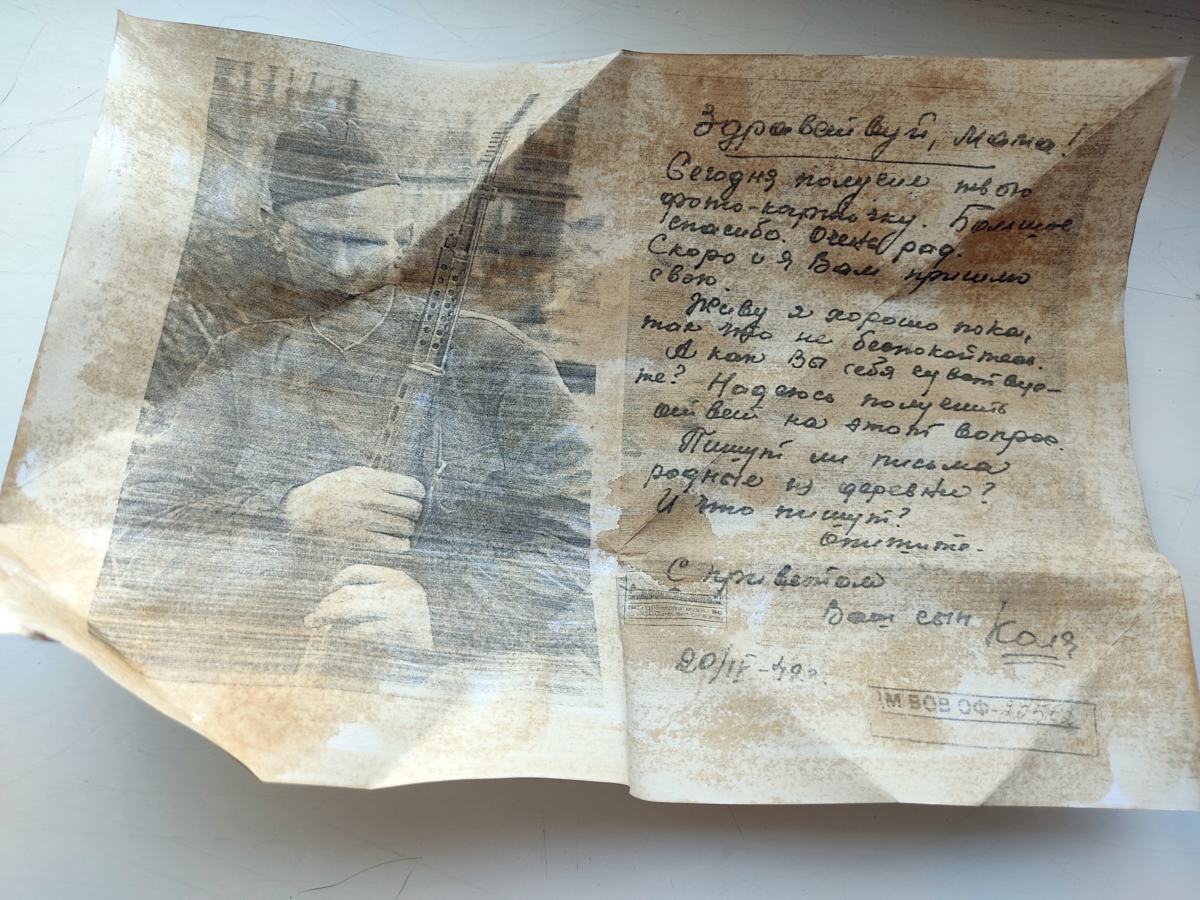 Здравствуй, мама!
Сегодня получил твою
фото-карточку. Большое
спасибо. Очень рад.
Скоро и я Вам пришлю
свою.
Живу я хорошо пока,
так что не беспокойтесь.
А как Вы себя чувствуе-
те? Надеюсь получить
ответ на этот вопрос.
Пишут ли письма
родные из деревни?
И что пишут?
Опишите.
С приветом
Ваш сын Коля
20/IV-42г.
М ВОВ ОФ-